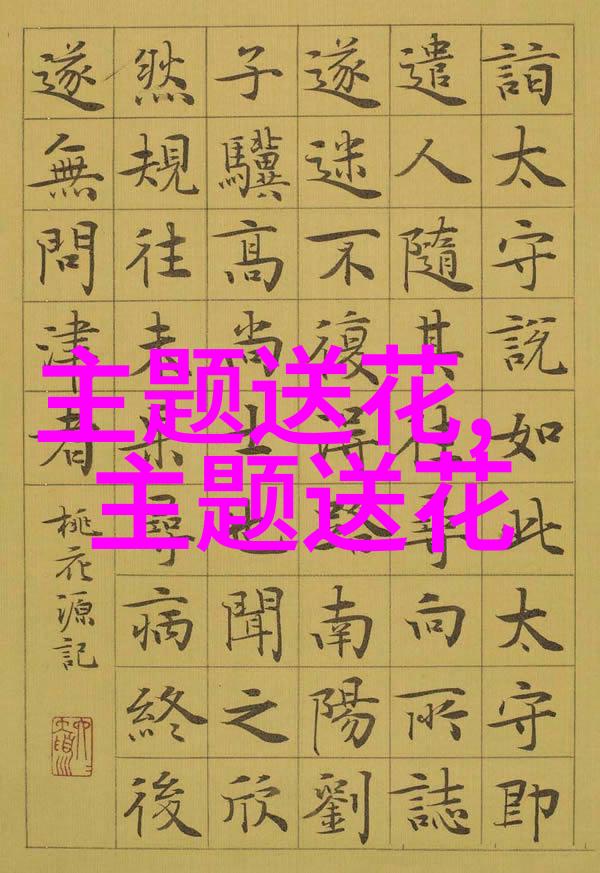 詣太守說如此太守即
遣人隨其往尋向所誌
遂迷不復得路南陽劉
子驥高尚士也聞之欣
然規往未果尋病終後
遂無問津者
桃花源記
主题送花,
主题送花